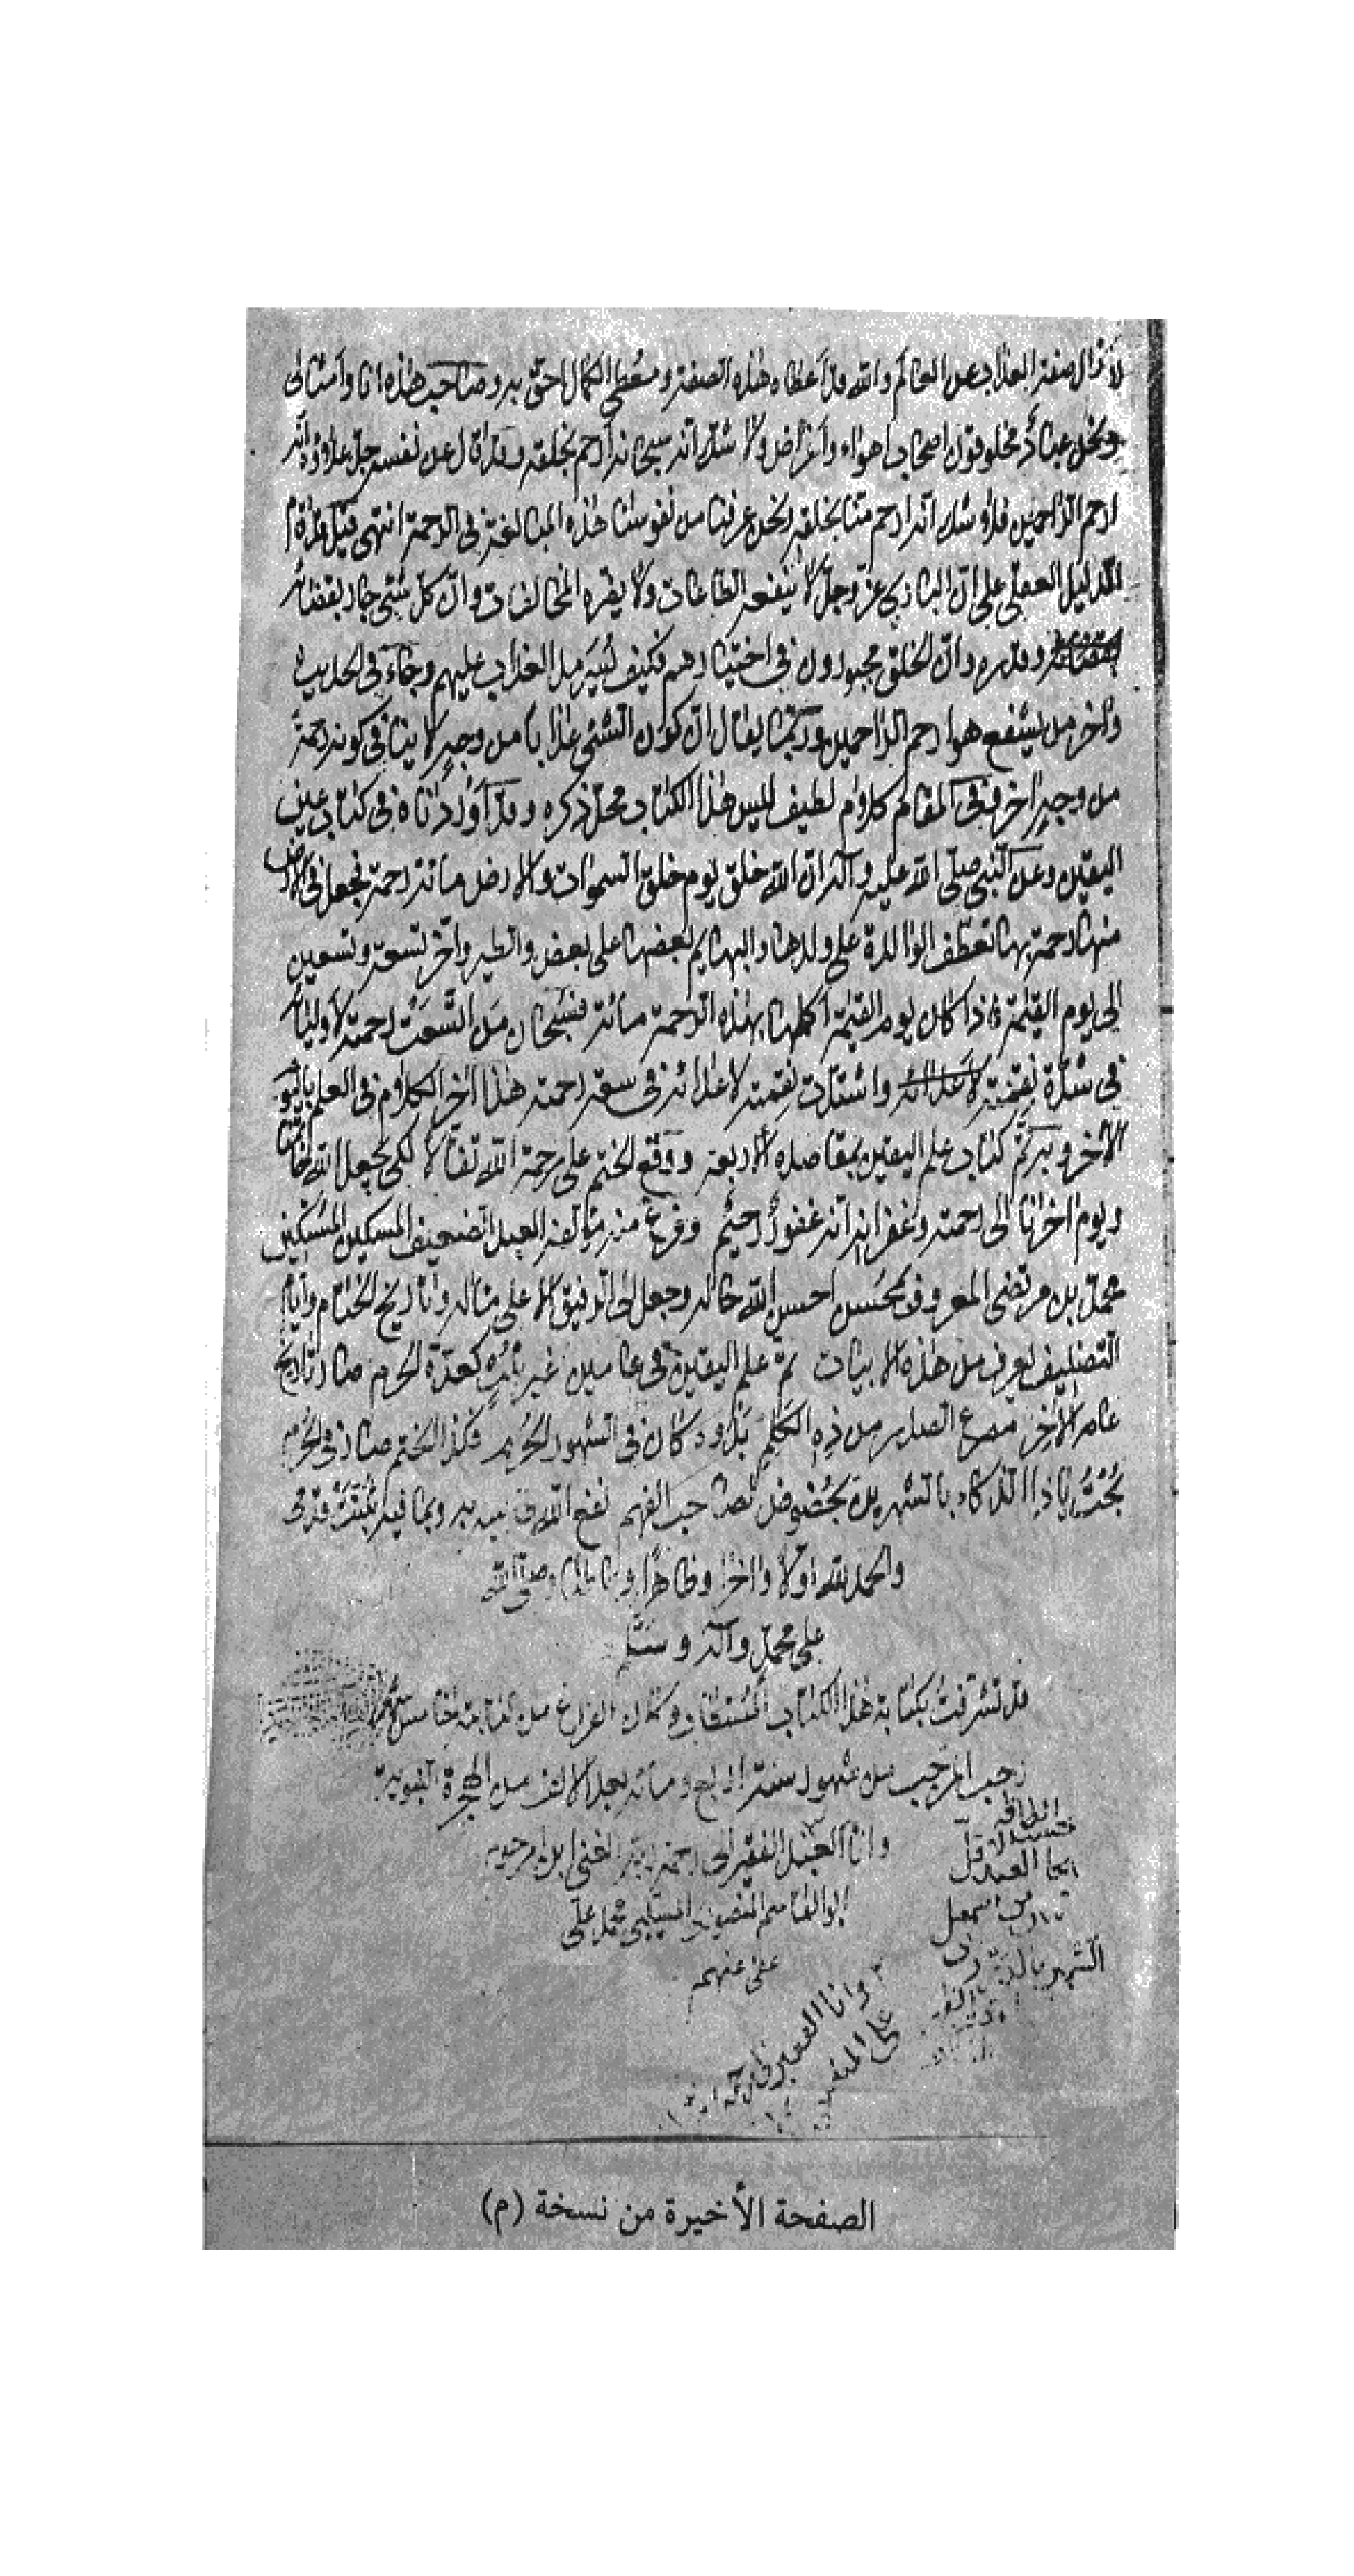 لأزال صفة العذاب عن العالم والله قد أعطاه هذه الصفة ومعطى الكمال احق به وصاحب هذه انا وأمثالى
ونحن عباد مخلوقون اصحاب اهواء وأغراض ولا شك انه سبحانه أرحم بخلقه وقد قال عن نفسه جل علاؤه انه
ارحم الراحمين فلا شك انه ارحم منا بخلقه ونحن عرفنا من نفوسنا هذه المبالغة فى الرحمة انتهى قيل وقد قام
الدليل العقلى على ان البارى عز وجل لا ينفعه الطاعات ولا يضره المخالفات وان كل شئ جار بقضائه
وقدره وان الخلق مجبورون فى اختيارهم فكيف يسرمد العذاب عليهم وجاء فى الحديث
وآخر من يشفع هو ارحم الراحمين وربما يقال ان كون الشئ عذابا من وجه لا ينافى كونه رحمة
من وجه اخر وفى المقام كلام لطيف ليس هذا الكتاب محل ذكره وقد أوردناه فى كتاب عين
اليقين وعن النبى صلى الله عليه وآله ان الله خلق يوم خلق السموات والارض مائة رحمة فجعل فى الارض
منها رحمة بها تعطف الوالدة على ولدها والبهايم بعضها على بعض والطير واخر تسعة وتسعين
الى يوم القيمة فاذا كان يوم القيمة اكملها بهذه الرحمة مائة فسبحان من اتسعت رحمته لأوليائه
فى شدة نقمته لأعدائه واشتدت نقمته لاعدائه فى سعة رحمته هذا اخر الكلام فى العلم باليوم
الاخر وبه تم كتاب علم اليقين بمقاصده الاربعة ووقع الختم على رحمة الله تفألا لكى يجعل الله خاتمتنا
ويوم اخرنا الى رحمته وغفرانه انه غفور رحيم وفرغ منه مؤلفه العبد الضعيف المسكين المستكين
محمد بن مرتضى المدعو بمحسن احسن الله حاله وجعل الى الرفيق الاعلى مآله وتاريخ الختام وأيام
التصنيف يعرف من هذه الابيات تم علم اليقين فى عامين غير بأو كعدة الحرم صار تاريخ
عامه الاخر مصرع الصدر من ذه الكلم بدؤه كان فى الشهور الحرم فكذا الختم صار فى الحرم
بحت ياذا الذكاء بالشهرين بخصوص لصاحب الفهم نفع الله به وبما فيه
والحمد لله اولا واخرا وظاهرا وباطنا وصلى الله
على محمد وآله وسلم
قد تشرفت بكتابة هذا الكتاب المستطاب وكان الفراغ من كتابته خامس شهر
رجب المرجب من شهور سنة اربع ومائة بعد الالف من الهجرة النبوية
وانا العبد الفقير الى رحمة ربه الغنى ابن المرحوم
ابو القاسم المنصورى محمد على
عفى عنهم
الصفحة الأخيرة من نسخة (م)